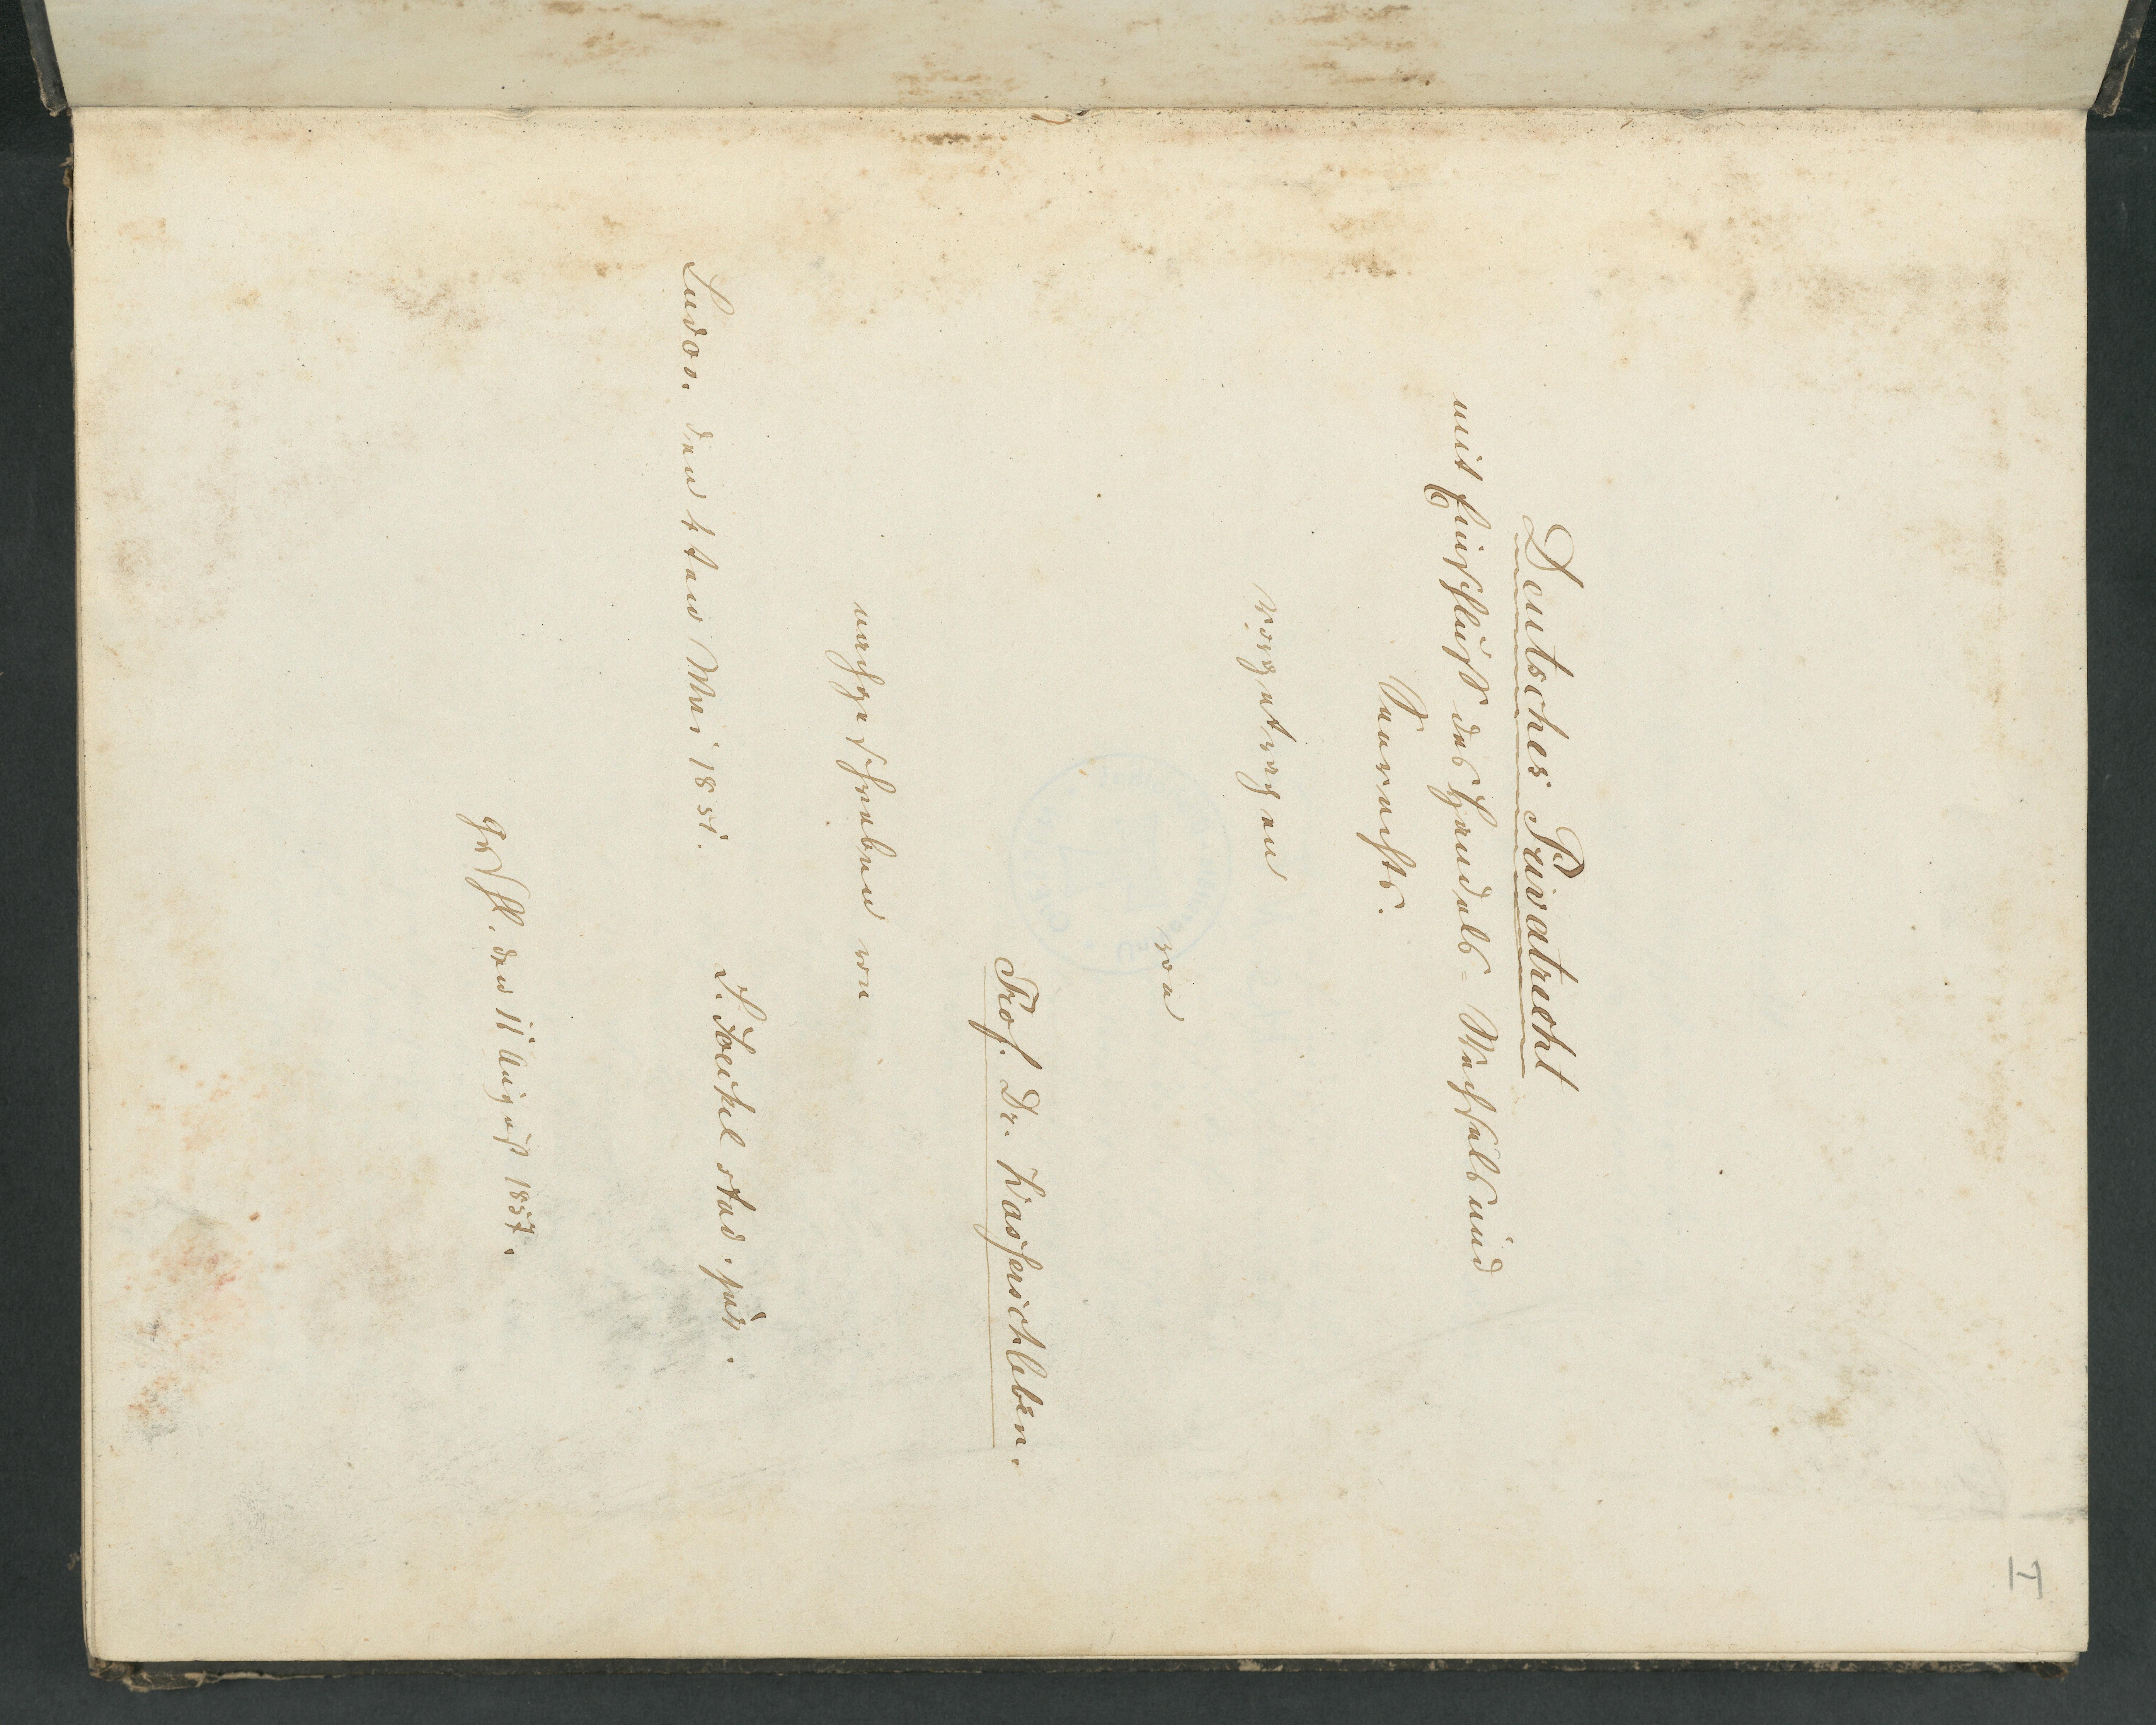 Deutsches Privatrecht
mit Einschluß des Handels- Wechsels und
Seerechts.
vorgetragen
von
Prof. Dr. Wasserschleben.
nachgeschrieben von
stud. jur.
den Mai 1857.
geschl. den 11 August 1857.